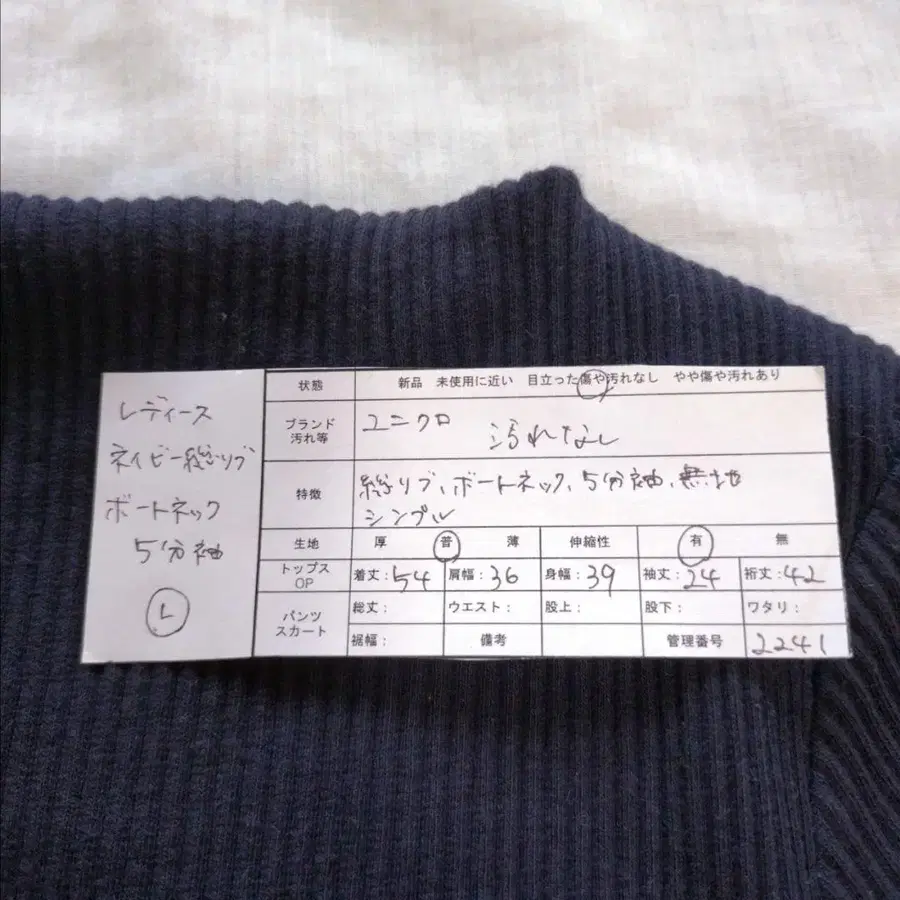 レディース
ネイビー総リブ
ボートネック
5分袖
L
状態 新品 未使用に近い 目立った傷や汚れなし やや傷や汚れあり
ブランド 汚れ等 ユニクロ 汚れなし
特徴 総リブ、ボートネック、5分袖、無地
シンプル
生地 厚 普 薄 伸縮性 有 無
トップス OP 着丈:54 肩幅:36 身幅:39 袖丈:24 裄丈:42
パンツ スカート 総丈: ウエスト: 股上: 股下: ワタリ:
裾幅: 備考 管理番号 2241